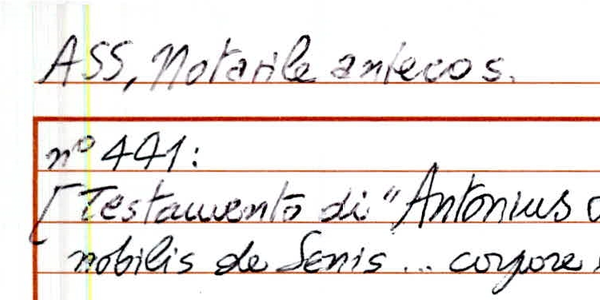 ASS, Notarile antecos.
n° 441:
[Testamento di "Antonius
nobilis de Senis... corpore